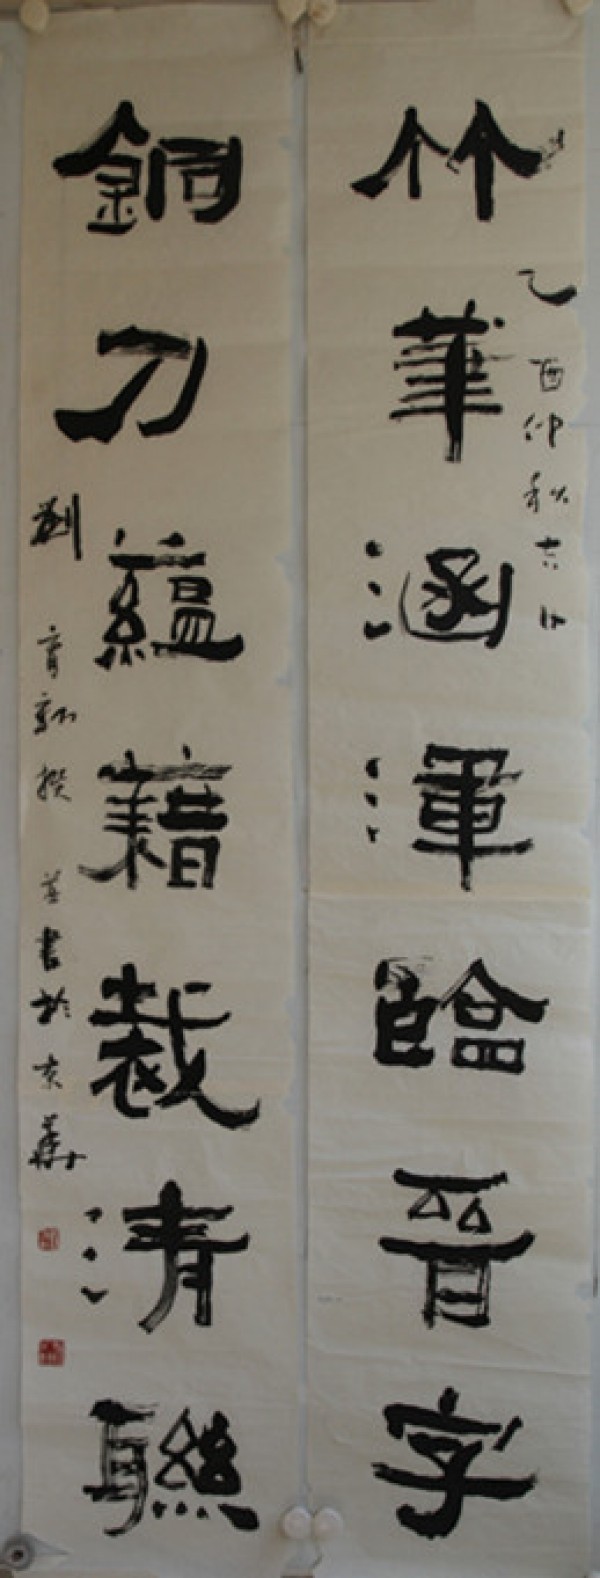 竹筆涵渾臨晉字
乙酉仲秋吉日
銅刀蘊藉裁清聯
劉育新撰并書於京華